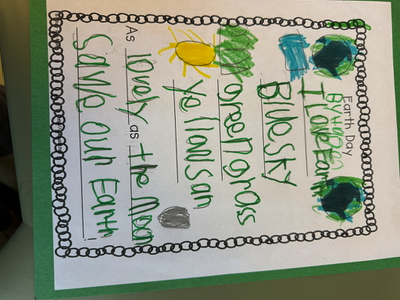 Earth Day
I Love Earth
Blue sky
green grass
yallow san
As lovely as the Moon
Save our Earth!